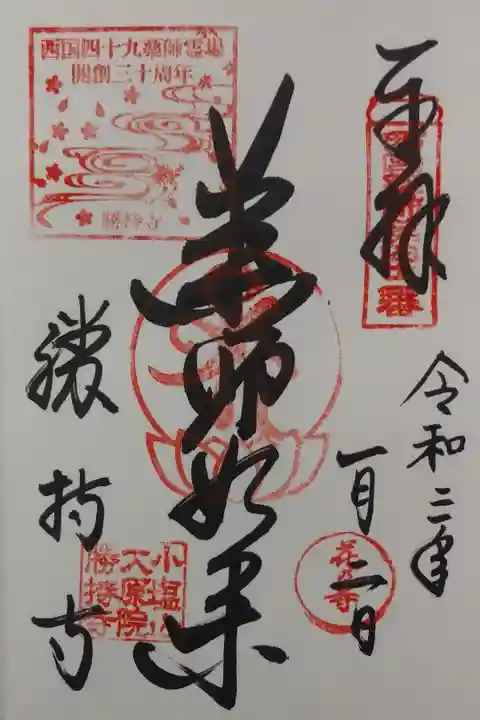 奉拝
令和二年
一月二日
花の寺
薬師如来
西国四十九薬師霊場
開創三十周年
勝持寺
勝持寺
小塩山
大原院
勝持寺